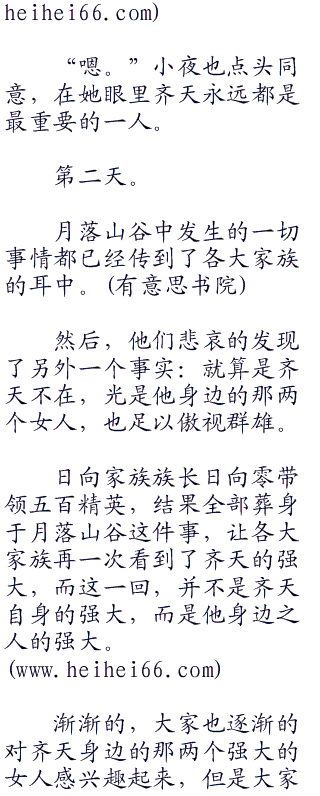 heihei66.com)
“嗯。”小夜也点头同
意，在她眼里齐天永远都是
最重要的一人。
第二天。
月落山谷中发生的一切
事情都已经传到了各大家族
的耳中。(有意思书院)
然后，他们悲哀的发现
了另外一个事实：就算是齐
天不在，光是他身边的那两
个女人，也足以傲视群雄。
日向家族族长日向零带
领五百精英，结果全部葬身
于月落山谷这件事，让各大
家族再一次看到了齐天的强
大，而这一回，并不是齐天
自身的强大，而是他身边之
人的强大。
(www.heihei66.com)
渐渐的，大家也逐渐的
对齐天身边的那两个强大的
女人感兴趣起来，但是大家